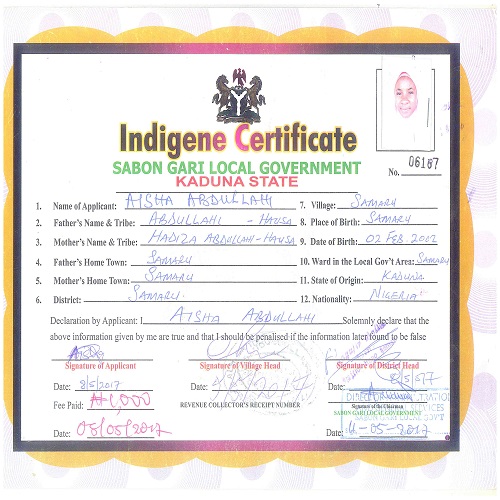 Indigene Certificate
SABON GARI LOCAL GOVERNMENT
KADUNA STATE
No. 06167
1. Name of Applicant: AISHA ABDULLAHI
7. Village: SAMARU
2. Father's Name & Tribe: ABDULLAHI - HAUSA
8. Place of Birth: SAMARU
3. Mother's Name & Tribe: HADIZA ABDULLAHI-HAUSA
9. Date of Birth: 02 FEB. 2012
4. Father's Home Town: SAMARU
10. Ward in the Local Gov't Area: SAMARU
5. Mother's Home Town: SAMARU
11. State of Origin: KADUNA
6. District: SAMARU.
12. Nationality: NIGERIA
Declaration by Applicant: I AISHA ABDULLAHI Solemnly declare that the
above information given by me are true and that I should be penalised if the information later found to be false
Signature of Applicant
Signature of Village Head
Signature of District Head
Date: 8/5/2017
Date:
Date:
Fee Paid: ₦1,000
REVENUE COLLECTOR'S RECEIPT NUMBER
Signature of the Chairman
SABON GARI LOCAL GOVT
Date: 08/05/2017
Date: 11-05-2017